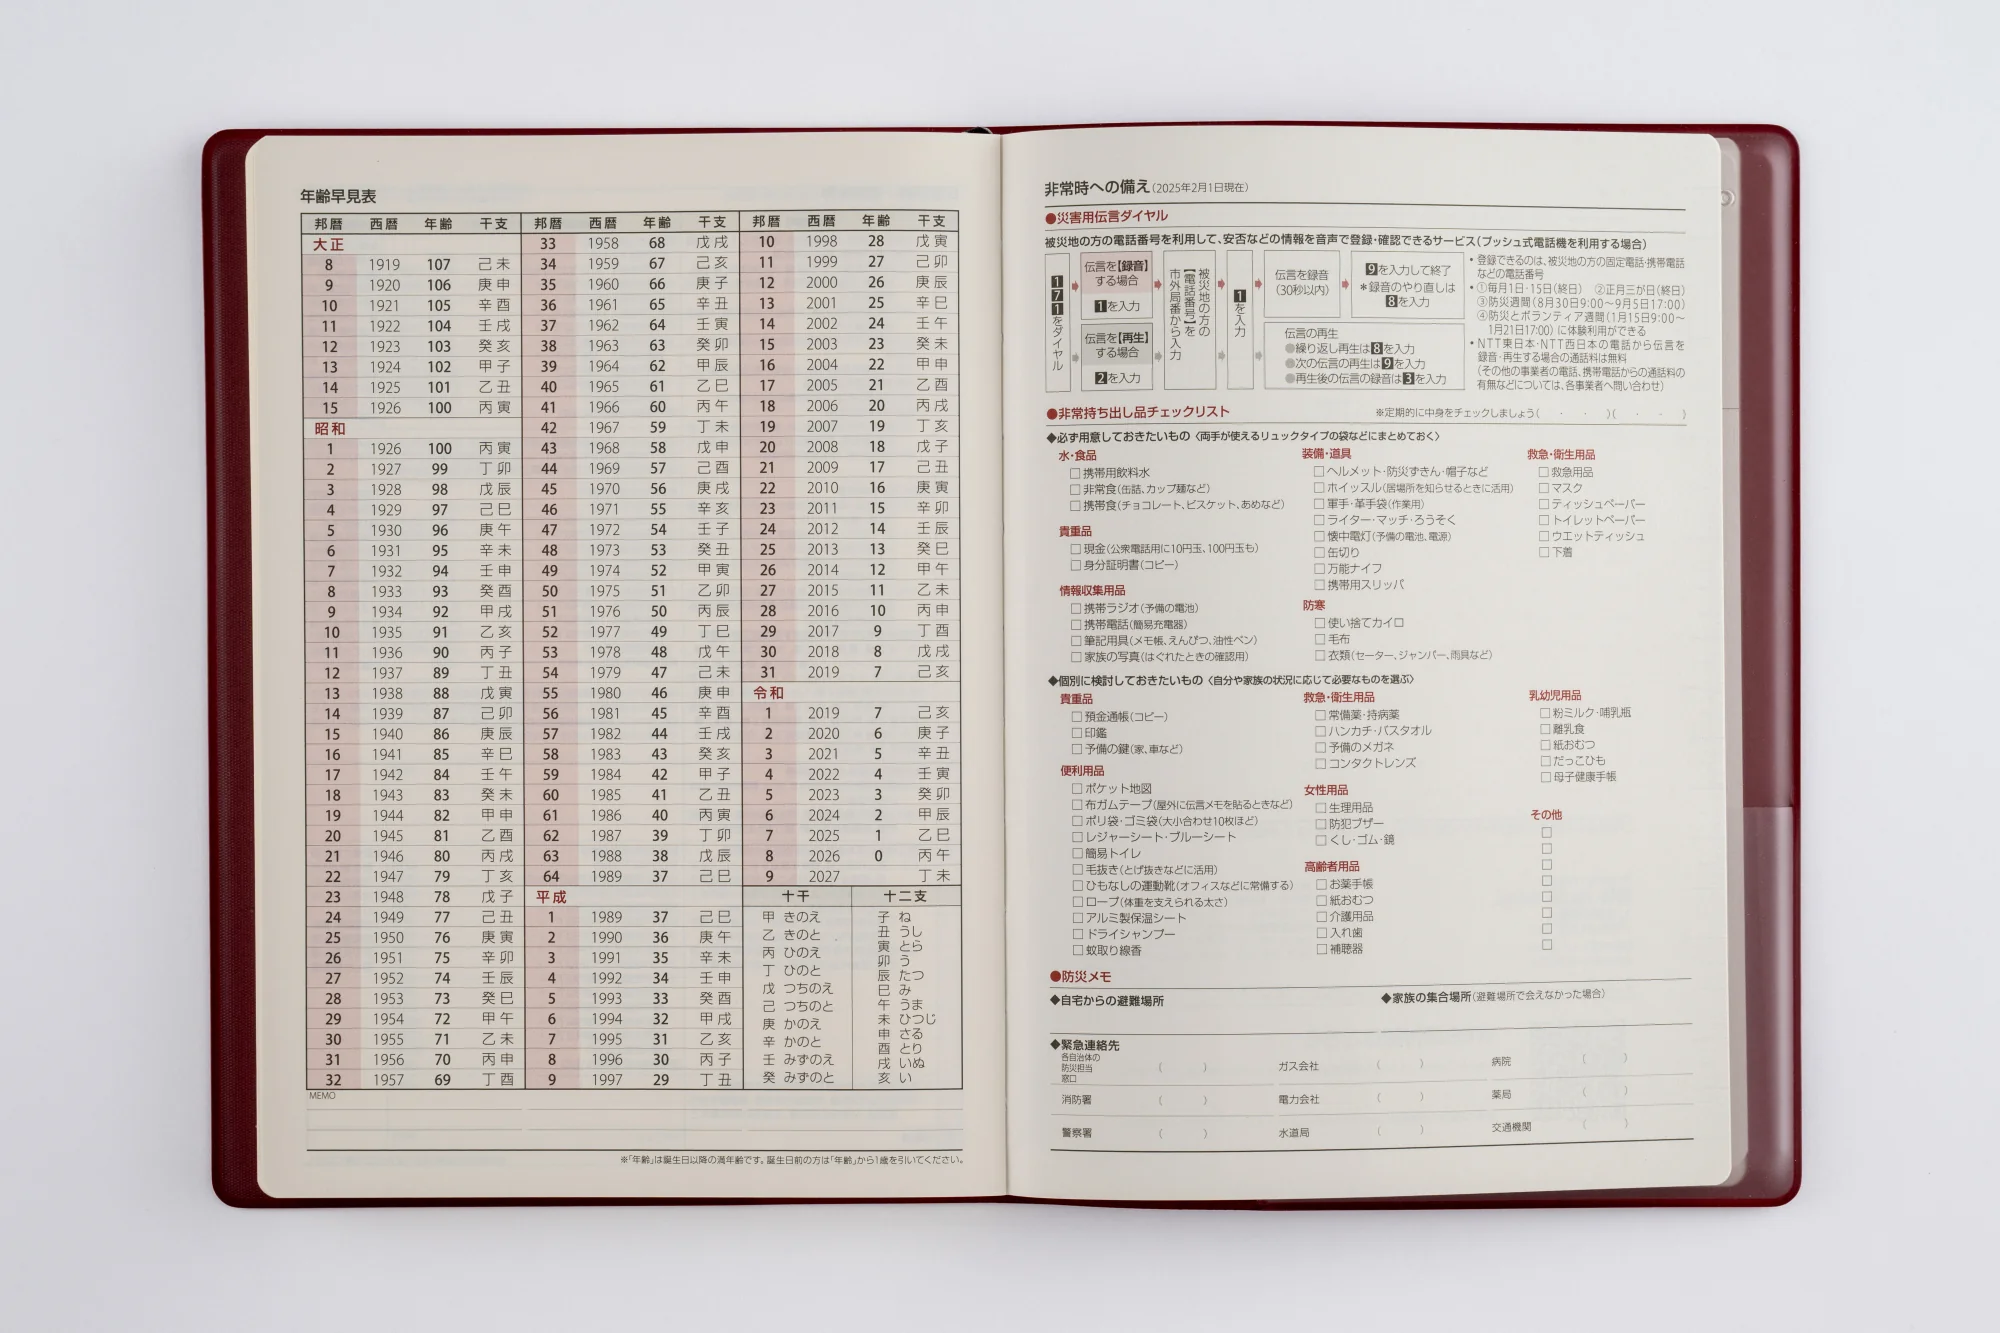 年齢早見表
邦暦 西暦 年齢 干支
大正
8 1919 107 己未
9 1920 106 庚申
10 1921 105 辛酉
11 1922 104 壬戌
12 1923 103 癸亥
13 1924 102 甲子
14 1925 101 乙丑
15 1926 100 丙寅
昭和
1 1926 100 丙寅
2 1927 99 丁卯
3 1928 98 戊辰
4 1929 97 己巳
5 1930 96 庚午
6 1931 95 辛未
7 1932 94 壬申
8 1933 93 癸酉
9 1934 92 甲戌
10 1935 91 乙亥
11 1936 90 丙子
12 1937 89 丁丑
13 1938 88 戊寅
14 1939 87 己卯
15 1940 86 庚辰
16 1941 85 辛巳
17 1942 84 壬午
18 1943 83 癸未
19 1944 82 甲申
20 1945 81 乙酉
21 1946 80 丙戌
22 1947 79 丁亥
23 1948 78 戊子
24 1949 77 己丑
25 1950 76 庚寅
26 1951 75 辛卯
27 1952 74 壬辰
28 1953 73 癸巳
29 1954 72 甲午
30 1955 71 乙未
31 1956 70 丙申
32 1957 69 丁酉
邦暦 西暦 年齢 干支
33 1958 68 戊戌
34 1959 67 己亥
35 1960 66 庚子
36 1961 65 辛丑
37 1962 64 壬寅
38 1963 63 癸卯
39 1964 62 甲辰
40 1965 61 乙巳
41 1966 60 丙午
42 1967 59 丁未
43 1968 58 戊申
44 1969 57 己酉
45 1970 56 庚戌
46 1971 55 辛亥
47 1972 54 壬子
48 1973 53 癸丑
49 1974 52 甲寅
50 1975 51 乙卯
51 1976 50 丙辰
52 1977 49 丁巳
53 1978 48 戊午
54 1979 47 己未
55 1980 46 庚申
56 1981 45 辛酉
57 1982 44 壬戌
58 1983 43 癸亥
59 1984 42 甲子
60 1985 41 乙丑
61 1986 40 丙寅
62 1987 39 丁卯
63 1988 38 戊辰
64 1989 37 己巳
平成
1 1989 37 己巳
2 1990 36 庚午
3 1991 35 辛未
4 1992 34 壬申
5 1993 33 癸酉
6 1994 32 甲戌
7 1995 31 乙亥
8 1996 30 丙子
9 1997 29 丁丑
邦暦 西暦 年齢 干支
10 1998 28 戊寅
11 1999 27 己卯
12 2000 26 庚辰
13 2001 25 辛巳
14 2002 24 壬午
15 2003 23 癸未
16 2004 22 甲申
17 2005 21 乙酉
18 2006 20 丙戌
19 2007 19 丁亥
20 2008 18 戊子
21 2009 17 己丑
22 2010 16 庚寅
23 2011 15 辛卯
24 2012 14 壬辰
25 2013 13 癸巳
26 2014 12 甲午
27 2015 11 乙未
28 2016 10 丙申
29 2017 9 丁酉
30 2018 8 戊戌
31 2019 7 己亥
令和
1 2019 7 己亥
2 2020 6 庚子
3 2021 5 辛丑
4 2022 4 壬寅
5 2023 3 癸卯
6 2024 2 甲辰
7 2025 1 乙巳
8 2026 0 丙午
9 2027 丁未
十干
甲 きのえ
乙 きのと
丙 ひのえ
丁 ひのと
戊 つちのえ
己 つちのと
庚 かのえ
辛 かのと
壬 みずのえ
癸 みずのと
十二支
子 ね
丑 うし
寅 とら
卯 う
辰 たつ
巳 み
午 うま
未 ひつじ
申 さる
酉 とり
戌 いぬ
亥 い
MEMO
※「年齢」は誕生日以降の満年齢です。誕生日前の方は「年齢」から1歳を引いてください。
非常時への備え(2025年2月1日現在)
●災害用伝言ダイヤル
被災地の方の電話番号を利用して、安否などの情報を音声で登録・確認できるサービス(プッシュ式電話機を利用する場合)
171をダイヤル
伝言を【録音】
する場合
1を入力
伝言を【再生】
する場合
2を入力
被災地の方の
【電話番号】を
市外局番から入力
1を入力
伝言を録音
(30秒以内)
9を入力して終了
*録音のやり直しは
8を入力
伝言の再生
●繰り返し再生は8を入力
●次の伝言の再生は9を入力
●再生後の伝言の録音は3を入力
・登録できるのは、被災地の方の固定電話・携帯電話
などの電話番号
・①毎月1日・15日(終日) ②正月三が日(終日)
③防災週間(8月30日9:00〜9月5日17:00)
④防災とボランティア週間(1月15日9:00〜
1月21日17:00)に体験利用ができる
・NTT東日本・NTT西日本の電話から伝言を
録音・再生する場合の通話料は無料
(その他の事業者の電話、携帯電話からの通話料の
有無などについては、各事業者へ問い合わせ)
●非常持ち出し品チェックリスト
※定期的に中身をチェックしましょう( ・ ・ )( ・ ・ )
◆必ず用意しておきたいもの〈両手が使えるリュックタイプの袋などにまとめておく〉
水・食品
□携帯用飲料水
□非常食(缶詰、カップ麺など)
□携帯食(チョコレート、ビスケット、あめなど)
貴重品
□現金(公衆電話用に10円玉、100円玉も)
□身分証明書(コピー)
情報収集用品
□携帯ラジオ(予備の電池)
□携帯電話(簡易充電器)
□筆記用具(メモ帳、えんぴつ、油性ペン)
□家族の写真(はぐれたときの確認用)
装備・道具
□ヘルメット・防災ずきん・帽子など
□ホイッスル(居場所を知らせるときに活用)
□軍手・革手袋(作業用)
□ライター・マッチ・ろうそく
□懐中電灯(予備の電池、電源)
□缶切り
□万能ナイフ
□携帯用スリッパ
防寒
□使い捨てカイロ
□毛布
□衣類(セーター、ジャンパー、雨具など)
救急・衛生用品
□救急用品
□マスク
□ティッシュペーパー
□トイレットペーパー
□ウエットティッシュ
□下着
◆個別に検討しておきたいもの〈自分や家族の状況に応じて必要なものを選ぶ〉
貴重品
□預金通帳(コピー)
□印鑑
□予備の鍵(家、車など)
便利用品
□ポケット地図
□布ガムテープ(屋外に伝言メモを貼るときなど)
□ポリ袋・ゴミ袋(大小合わせ10枚ほど)
□レジャーシート・ブルーシート
□簡易トイレ
□毛抜き(とげ抜きなどに活用)
□ひもなしの運動靴(オフィスなどに常備する)
□ロープ(体重を支えられる太さ)
□アルミ製保温シート
□ドライシャンプー
□蚊取り線香
救急・衛生用品
□常備薬・持病薬
□ハンカチ・バスタオル
□予備のメガネ
□コンタクトレンズ
女性用品
□生理用品
□防犯ブザー
□くし・ゴム・鏡
高齢者用品
□お薬手帳
□紙おむつ
□介護用品
□入れ歯
□補聴器
乳幼児用品
□粉ミルク・哺乳瓶
□離乳食
□紙おむつ
□だっこひも
□母子健康手帳
その他
□
□
□
□
□
□
□
□
●防災メモ
◆自宅からの避難場所
◆家族の集合場所(避難場所で会えなかった場合)
◆緊急連絡先
各自治体の
防災担当
窓口 ( )
ガス会社 ( )
病院 ( )
消防署 ( )
電力会社 ( )
薬局 ( )
警察署 ( )
水道局 ( )
交通機関 ( )